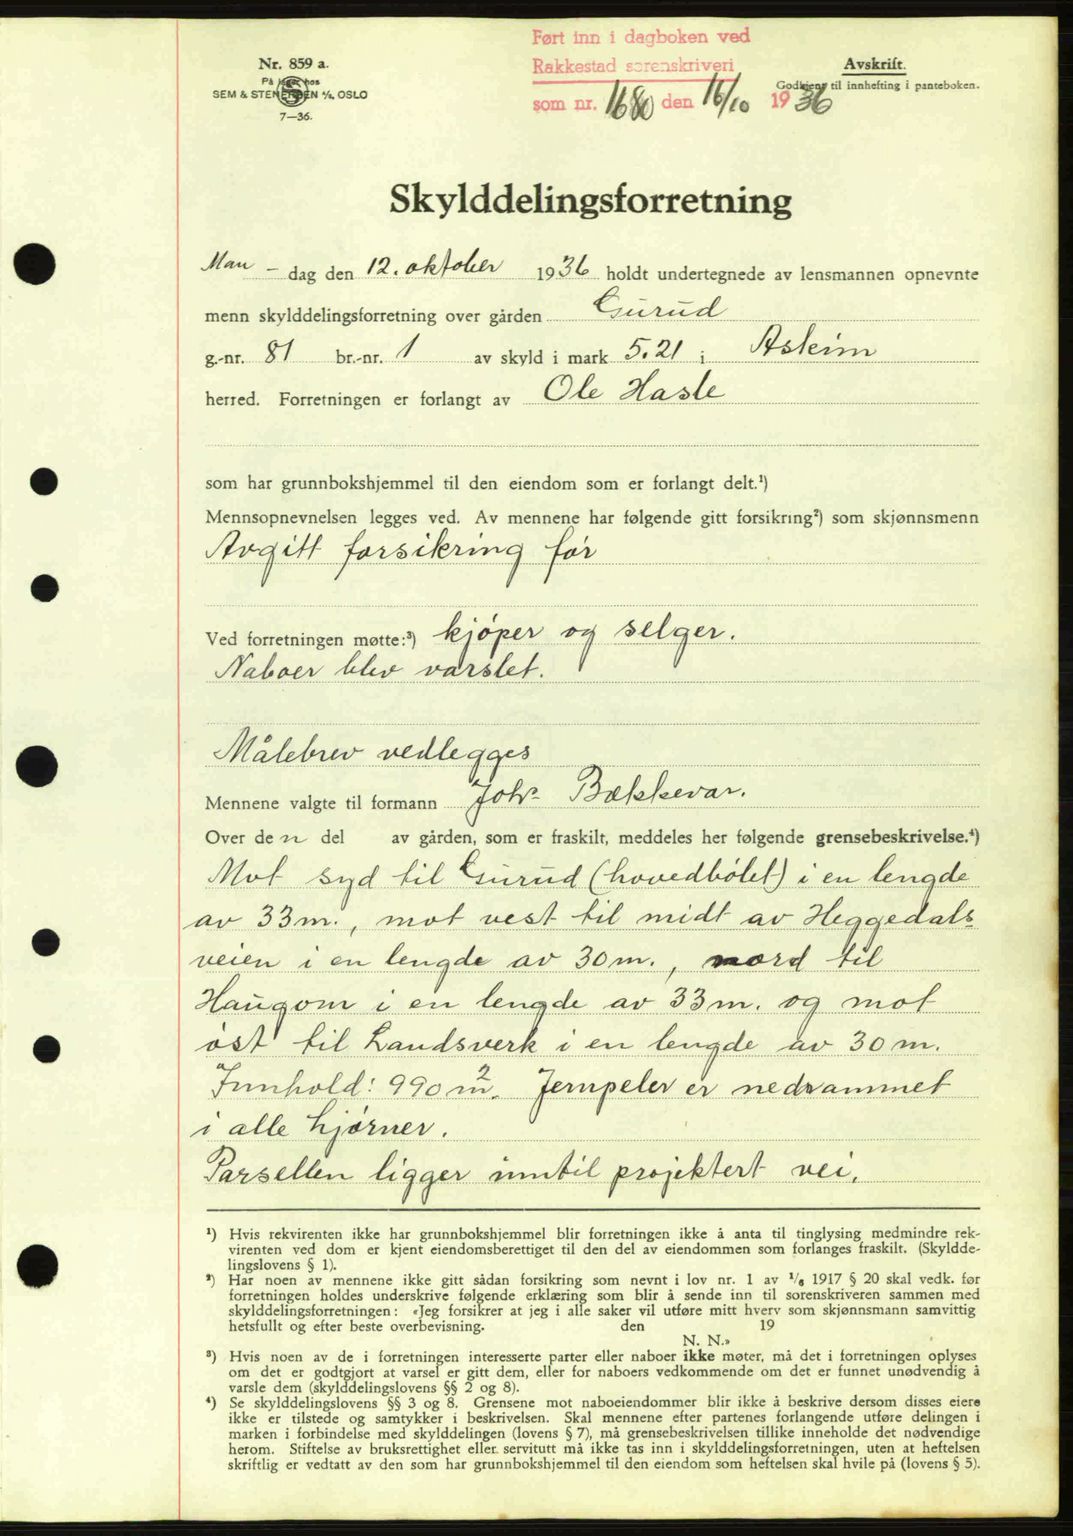 Ført inn i dagboken ved
Rakkestad sorenskriveri
som nr. 1680 den 16/10 1936
Nr. 859 a.
På lager hos
SEM & STENERSEN A/S, OSLO
7—36.
Avskrift.
Godkjent til innhefting i panteboken.
Skylddelingsforretning
Man - dag den 12. oktober 1936 holdt undertegnede av lensmannen opnevnte
menn skylddelingsforretning over gården Gurud
g.-nr. 81 br.-nr. 1 av skyld i mark 5.21 i Askim
herred. Forretningen er forlangt av Ole Hasle
som har grunnbokshjemmel til den eiendom som er forlangt delt.¹)
Mennsopnevnelsen legges ved. Av mennene har følgende gitt forsikring²) som skjønnsmenn
Avgitt forsikring før
Ved forretningen møtte:³) kjøper og selger.
Naboer blev varslet.
Målebrev vedlegges
Mennene valgte til formann Joh. Bækkevar.
Over den del av gården, som er fraskilt, meddeles her følgende grensebeskrivelse.⁴)
Mot syd til Gurud (hovedbølet) i en lengde
av 33 m., mot vest til midt av Heggedals
veien i en lengde av 30 m., nord til
Haugom i en lengde av 33 m. og mot
øst til Landsverk i en lengde av 30 m.
Innhold: 990 m². Jernpeler er nedrammet
i alle hjørner.
Parsellen ligger inntil projektert vei.
¹) Hvis rekvirenten ikke har grunnbokshjemmel blir forretningen ikke å anta til tinglysing medmindre rek-
virenten ved dom er kjent eiendomsberettiget til den del av eiendommen som forlanges fraskilt. (Skyldde-
lingslovens § 1).
²) Har noen av mennene ikke gitt sådan forsikring som nevnt i lov nr. 1 av 1/6 1917 § 20 skal vedk. før
forretningen holdes underskrive følgende erklæring som blir å sende inn til sorenskriveren sammen med
skylddelingsforretningen: «Jeg forsikrer at jeg i alle saker vil utføre mitt hverv som skjønnsmann samvittig
hetsfullt og efter beste overbevisning. den 19
N. N.»
³) Hvis noen av de i forretningen interesserte parter eller naboer ikke møter, må det i forretningen oplyses
om det er godtgjort at varsel er gitt dem, eller for naboers vedkommende om det er funnet unødvendig å
varsle dem (skylddelingslovens §§ 2 og 8).
⁴) Se skylddelingslovens §§ 3 og 8. Grensene mot naboeiendommer blir ikke å beskrive dersom disses eiere
ikke er tilstede og samtykker i beskrivelsen. Skal mennene efter partenes forlangende utføre delingen i
marken i forbindelse med skylddelingen (lovens § 7), må grensebeskrivelsen tillike inneholde det nødvendige
herom. Stiftelse av bruksrettighet eller servitutt må ikke tas inn i skylddelingsforretningen, uten at heftelsen
skriftlig er vedtatt av den som har grunnbokshjemmel til den eiendom som heftelsen skal hvile på (lovens § 5).